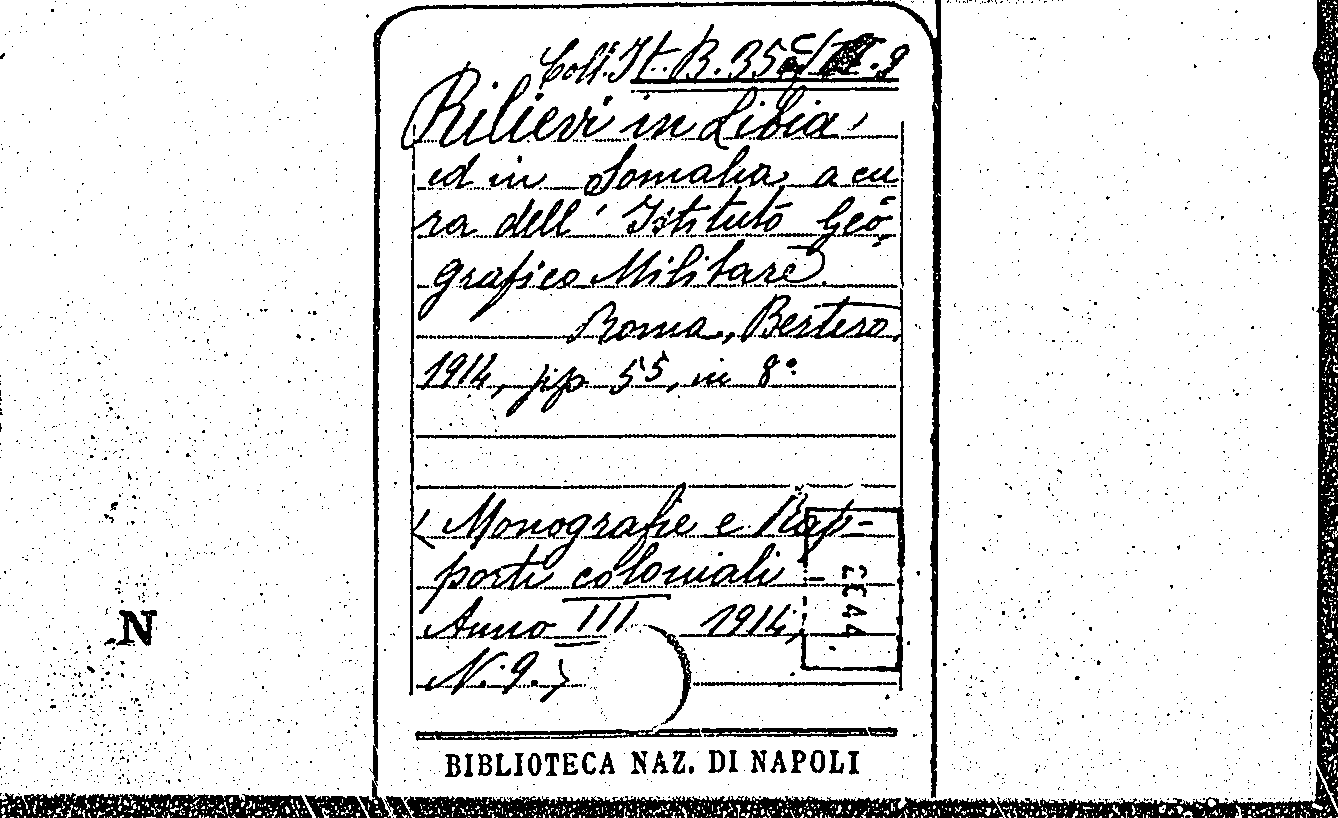 Coll. It. B. 35 9
Rilievi in Libia
ed in Somalia, a cu
ra dell' Istituto Geo-
grafico Militare.
Roma, Bertero,
1914, pp 55, in 8°
(Monografie e Rap-
porti coloniali -
Anno III 1914,
N. 9.)
BIBLIOTECA NAZ. DI NAPOLI
N